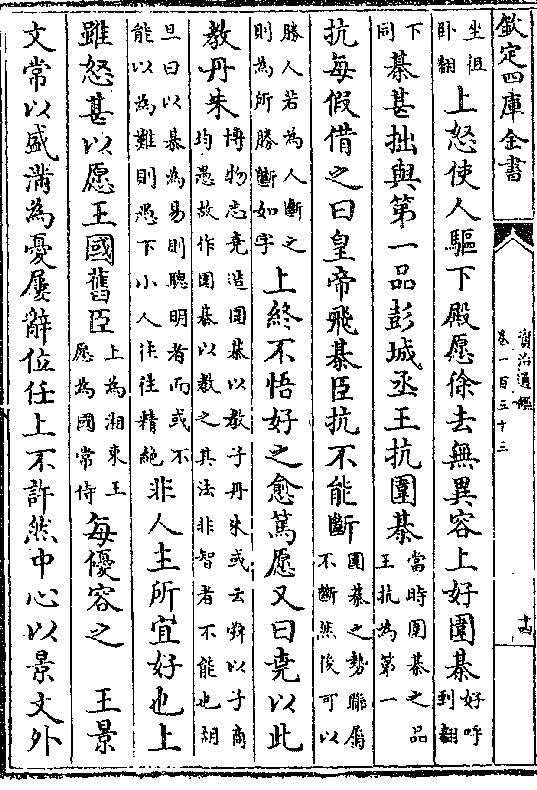 欽定四庫全書
資治通鑑
卷一百三十三
十四
坐徂卧翻上怒使人驅下殿愿徐去無異容上好圍棊好呼到翻
下同棊甚拙與第一品彭城丞王抗圍棊當時圍棊之品王抗為第一
抗每假借之曰皇帝飛棊臣抗不能斷圍棊之勢聯屬不斷然後可以
勝人若為人斷之則為所勝斷如字上終不悟好之愈篤愿又曰堯以此
教丹朱博物志堯造圍棊以教子丹朱或云舜以子商均愚故作圍棊以教之其法非智者不能也胡
旦曰以棊為易則聰明者而或不能以為難則愚下小人往往精絶非人主所宜好也上
雖怒甚以愿王國舊臣上為湘東王愿為國常侍每優容之 王景
文常以盛滿為憂屢辭位任上不許然中心以景文外